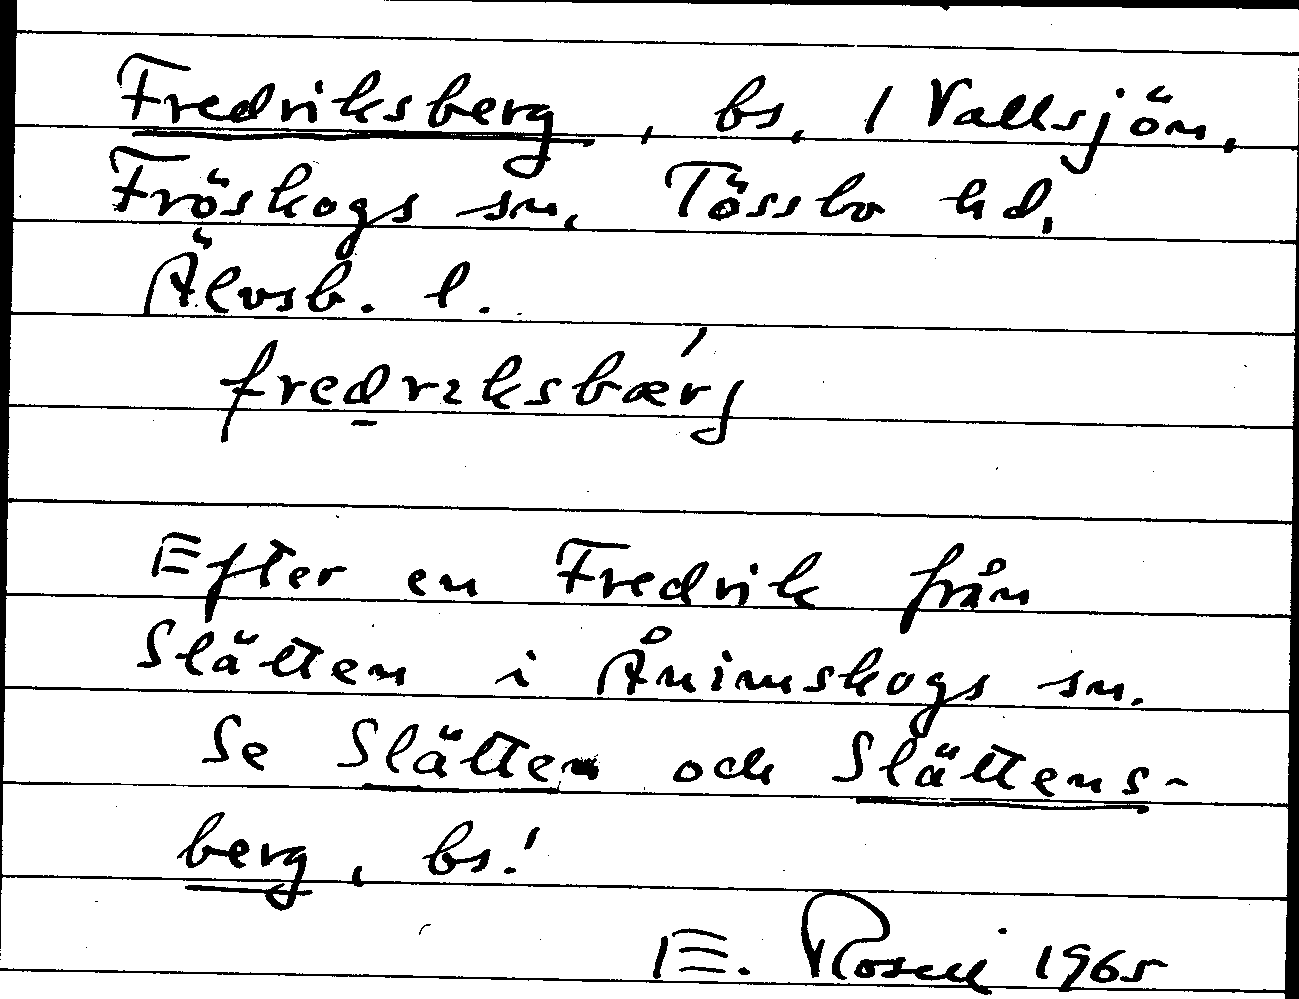 Fredriksberg, bs. / Vallsjön,
Fröskogs sn. Tössbo hd.
Älvsb. l.
fredrıksbæŕj
Efter en Fredrik från
Slätten i Ånimskogs sn.
Se Slätten och Slättens-
berg, bs.!
E. Rosell 1965